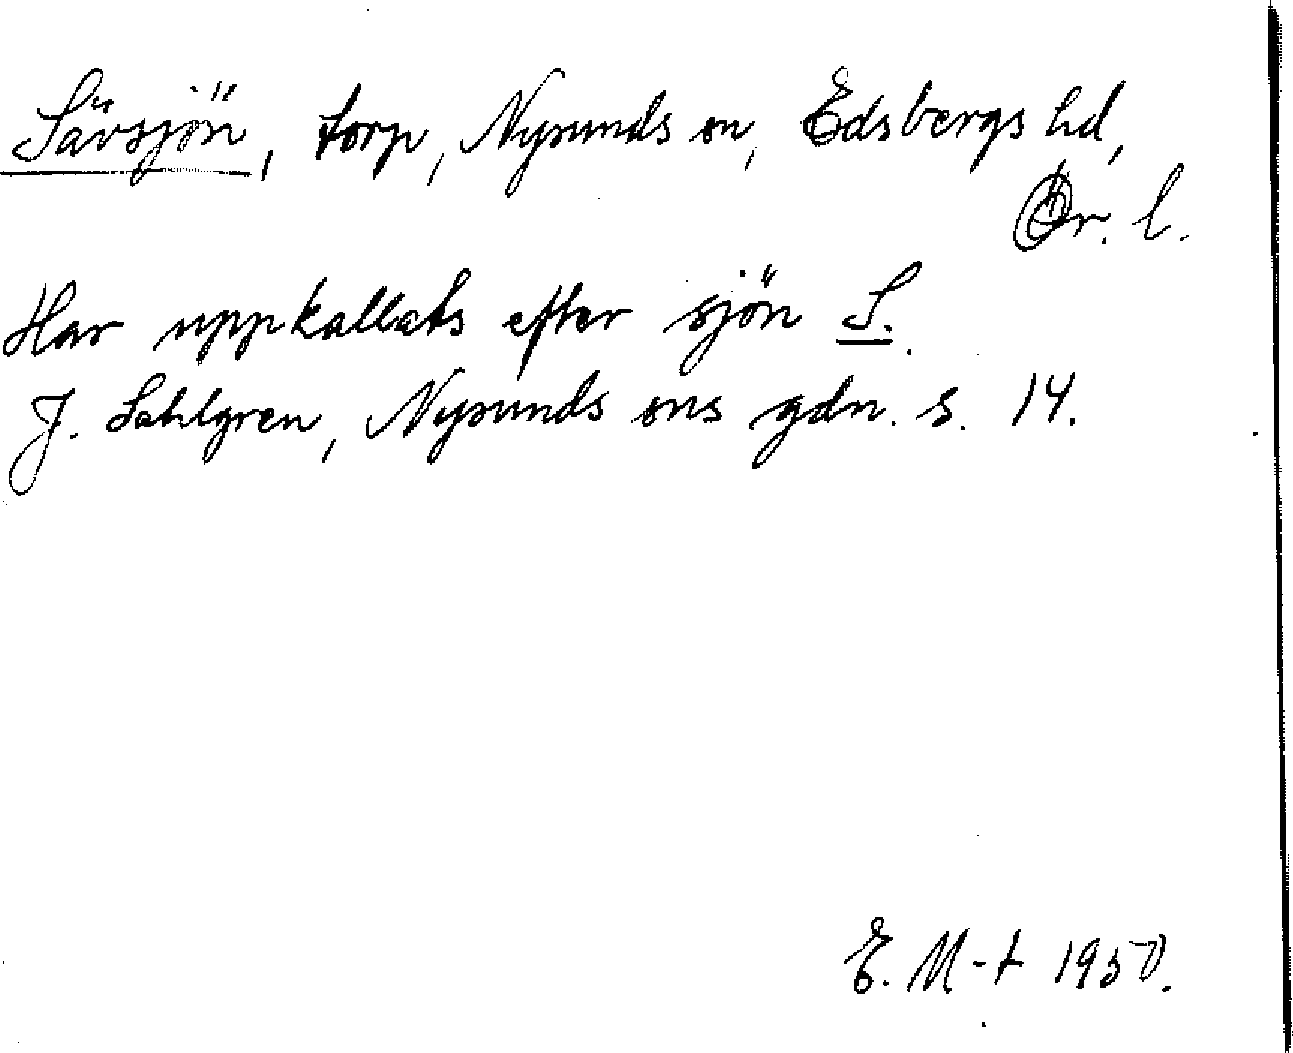 Sävsjön, torp, Nysunds sn, Edsbergs hd,
Ör. l.
Har uppkallats efter sjön S.
J. Sahlgren, Nysunds sns gdn. s. 14.
E. M-t 1950.